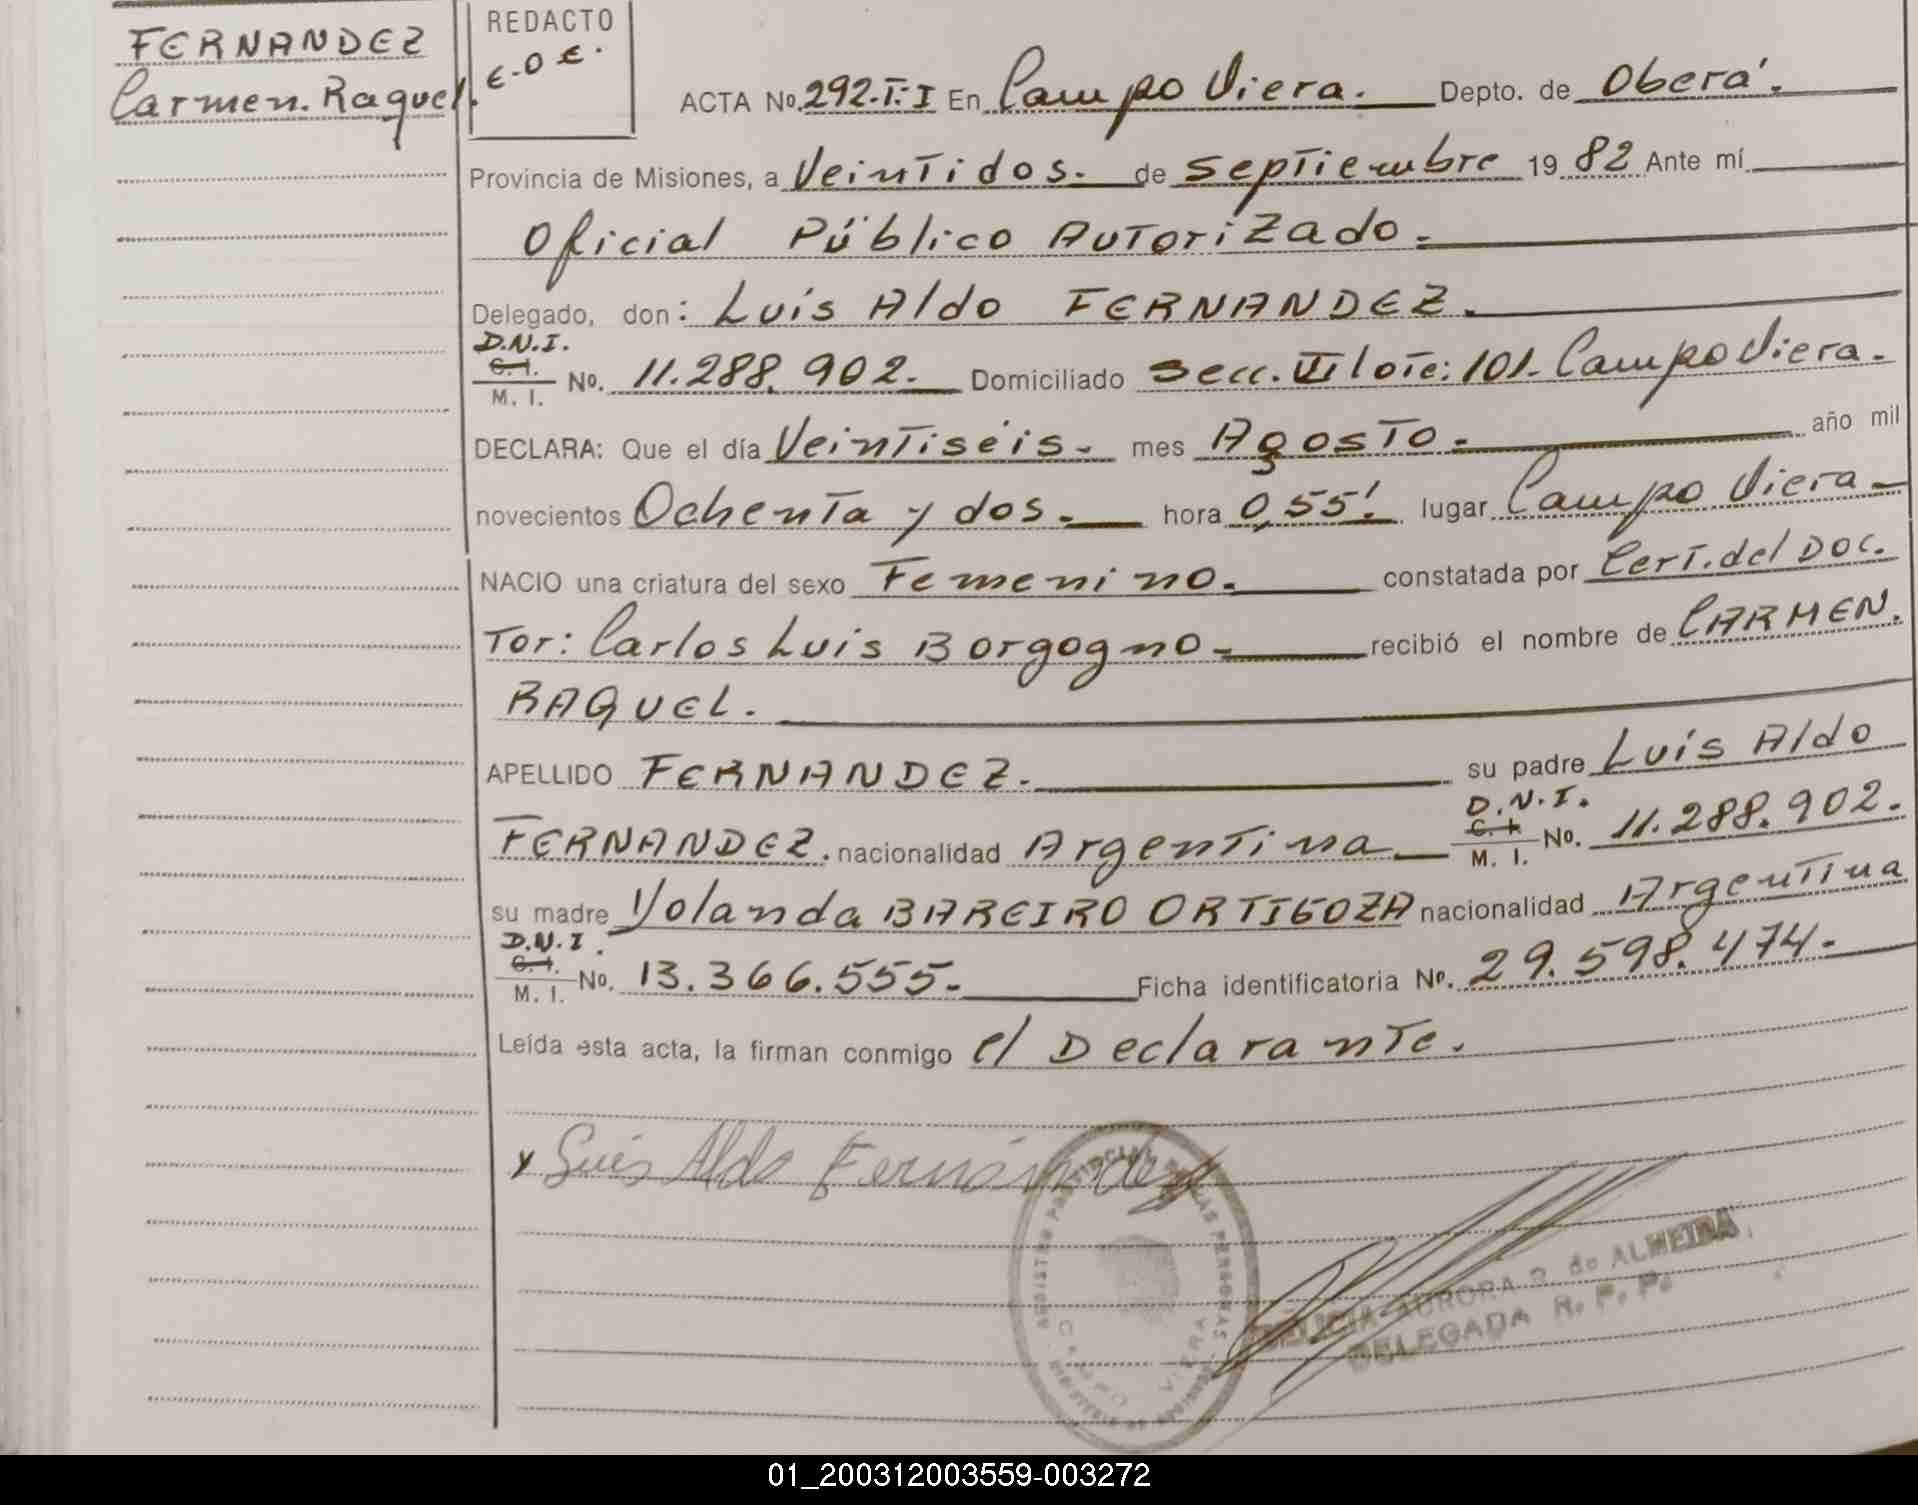 FERNANDEZ
Carmen. Raquel.
REDACTO
E-O E.
ACTA No. 292.T.I En Campo Viera. Depto. de Oberá.
Provincia de Misiones, a Veintidos. de Septiembre 19 82 Ante mí
Oficial Público Autorizado.
Delegado, don: Luis Aldo FERNANDEZ.
D.N.I.
C.I.
M. I. No. 11.288.902. Domiciliado Secc. VI lote: 101. Campo Viera.
DECLARA: Que el día Veintiséis. mes Agosto. año mil
novecientos Ochenta y dos. hora 0,55'. lugar Campo Viera
NACIO una criatura del sexo Femenino. constatada por Cert. del Doc.
Tor: Carlos Luis Borgogno recibió el nombre de CARMEN.
RAQUEL.
APELLIDO FERNANDEZ. su padre Luis Aldo
FERNANDEZ. nacionalidad Argentina D.N.I. C.I. M. I. No. 11.288.902.
su madre Yolanda BAREIRO ORTIGOZA nacionalidad Argentina
D.N.I.
C.I.
M. I. No. 13.366.555. Ficha identificatoria No. 29.598.474.
Leída esta acta, la firman conmigo el Declarante.
Luis Aldo Fernández
REGISTRO PROVINCIAL DE LAS PERSONAS
CAMPO VIERA
AURORA de ALMEIDA
DELEGADA R. P. P.
01_200312003559-003272